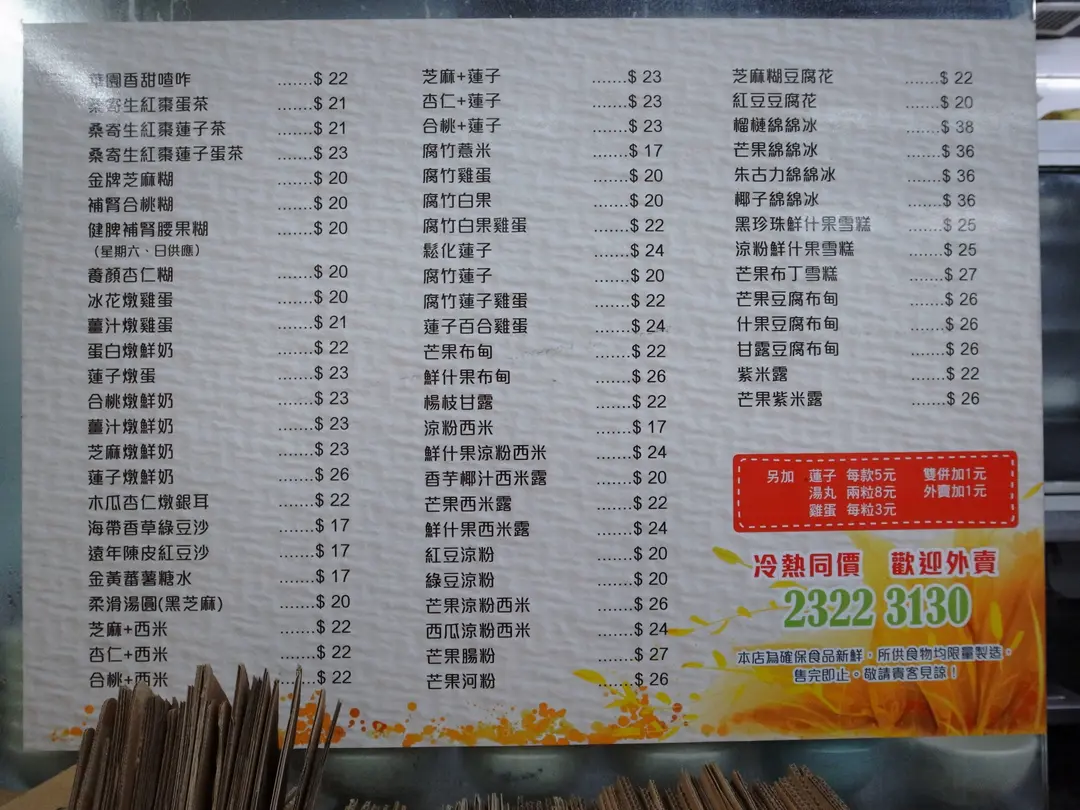 園香甜喳咋 .......$ 22
桑寄生紅棗蛋茶 .......$ 21
桑寄生紅棗蓮子茶 .......$ 21
桑寄生紅棗蓮子蛋茶 .......$ 23
金牌芝麻糊 .......$ 20
補腎合桃糊 .......$ 20
健脾補腎腰果糊 .......$ 20
(星期六、日供應)
養顏杏仁糊 .......$ 20
冰花燉雞蛋 .......$ 20
薑汁燉雞蛋 .......$ 21
蛋白燉鮮奶 .......$ 22
蓮子燉蛋 .......$ 23
合桃燉鮮奶 .......$ 23
薑汁燉鮮奶 .......$ 23
芝麻燉鮮奶 .......$ 23
蓮子燉鮮奶 .......$ 26
木瓜杏仁燉銀耳 .......$ 22
海帶香草綠豆沙 .......$ 17
遠年陳皮紅豆沙 .......$ 17
金黃蕃薯糖水 .......$ 17
柔滑湯圓(黑芝麻) .......$ 20
芝麻+西米 .......$ 22
杏仁+西米 .......$ 22
合桃+西米 .......$ 22
芝麻+蓮子 .......$ 23
杏仁+蓮子 .......$ 23
合桃+蓮子 .......$ 23
腐竹薏米 .......$ 17
腐竹雞蛋 .......$ 20
腐竹白果 .......$ 20
腐竹白果雞蛋 .......$ 22
鬆化蓮子 .......$ 24
腐竹蓮子 .......$ 20
腐竹蓮子雞蛋 .......$ 22
蓮子百合雞蛋 .......$ 24
芒果布甸 .......$ 22
鮮什果布甸 .......$ 26
楊枝甘露 .......$ 22
涼粉西米 .......$ 17
鮮什果涼粉西米 .......$ 24
香芋椰汁西米露 .......$ 20
芒果西米露 .......$ 22
鮮什果西米露 .......$ 24
紅豆涼粉 .......$ 20
綠豆涼粉 .......$ 20
芒果涼粉西米 .......$ 26
西瓜涼粉西米 .......$ 24
芒果腸粉 .......$ 27
芒果河粉 .......$ 26
芝麻糊豆腐花 .......$ 22
紅豆豆腐花 .......$ 20
榴槤綿綿冰 .......$ 38
芒果綿綿冰 .......$ 36
朱古力綿綿冰 .......$ 36
椰子綿綿冰 .......$ 36
黑珍珠鮮什果雪糕 .......$ 25
涼粉鮮什果雪糕 .......$ 25
芒果布丁雪糕 .......$ 27
芒果豆腐布甸 .......$ 26
什果豆腐布甸 .......$ 26
甘露豆腐布甸 .......$ 26
紫米露 .......$ 22
芒果紫米露 .......$ 26
另加 蓮子 每款5元 雙併加1元
湯丸 兩粒8元 外賣加1元
雞蛋 每粒3元
冷熱同價 歡迎外賣
2322 3130
本店為確保食品新鮮，所供食物均限量製造，
售完即止。敬請貴客見諒！